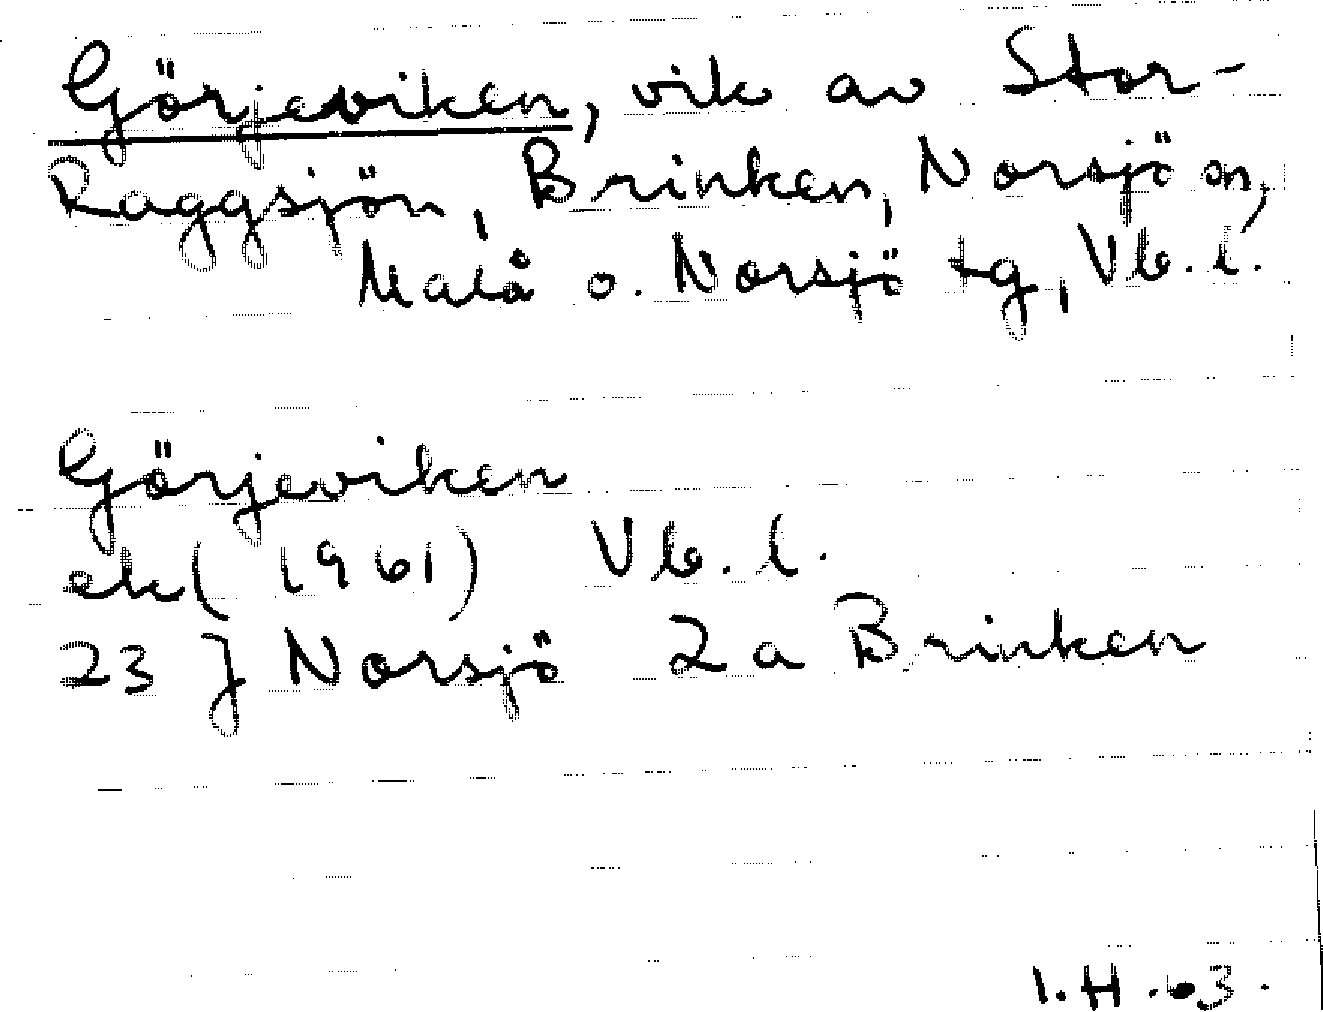 Görjeviken, vik av Stor-
Raggsjön, Brinken, Norsjö sn,
Malå o. Norsjö tg, Vb. l.
Görjeviken
ek (1961) Vb. l.
23 J Norsjö 2a Brinken
I.H.63.